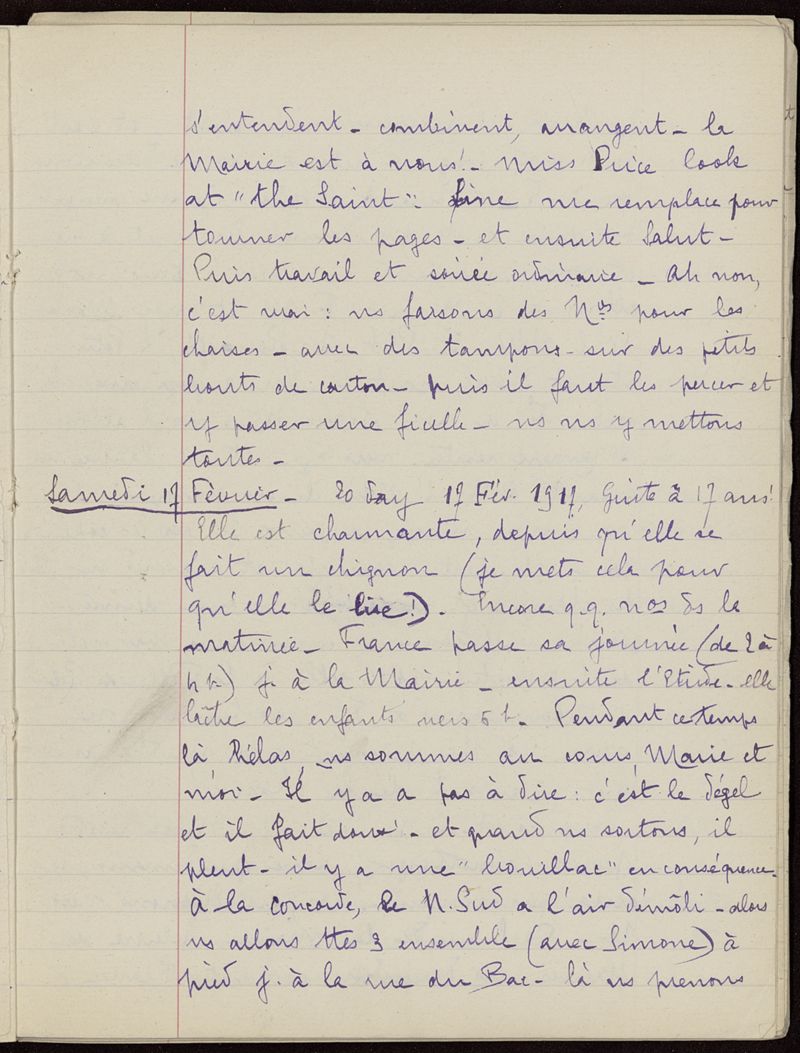 s'entendent - combinent, arrangent - la
Mairie est à nous! - Miss Price look
at "the Saint": Line me remplace pour
tourner les pages - et ensuite Salut -
Puis travail et soirée ordinaire - Ah non,
c'est vrai : ns faisons des Nos pour les
chaises - avec des tampons - sur des petits
bouts de carton - puis il faut les percer et
y passer une ficelle - ns ns y mettons
toutes -
Samedi 17 Février - To day 17 Fév. 1917, Guite a 17 ans!
Elle est charmante, depuis qu'elle se
fait un chignon (je mets cela pour
qu'elle le lise!). Encore q.q. nos ds la
matinée - France passe sa journée (de 2 à
4 h) j. à la Mairie - ensuite l'Etude - elle
lâche les enfants vers 5 h - Pendant ce temps
là hélas, ns sommes au cours, Marie et
moi - Il y a a pas à dire : c'est le dégel
et il fait doux! - et quand ns sortons, il
pleut - il y a une "bouillac" en conséquence -
À la Concorde, le N. Sud a l'air démoli - alors
ns allons ttes 3 ensemble (avec Simone) à
pied j. à la rue du Bac - là ns prenons